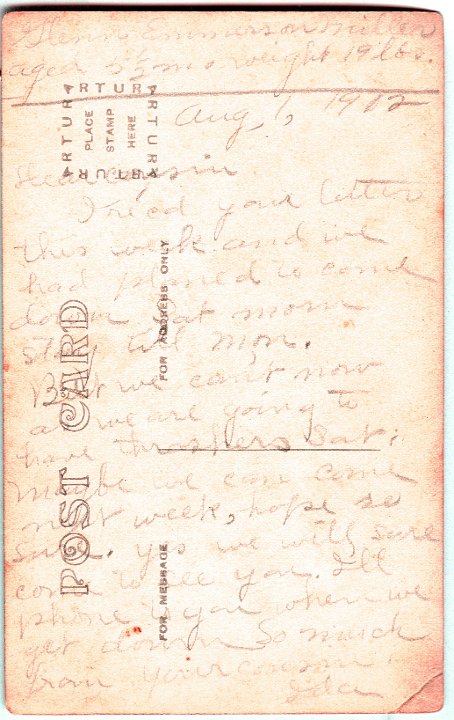 Glenn Emmerson Miller
aged 5½ mo weight 19 lbs.
Aug, 1, 1912
Dear Cousin
I rec'd your letter
this week and we
had planed to come
down Sat morn
stay till Mon.
But we can't now
as we are going to
have thrashers Sat;
Maybe we can come
next week, hope so
sure. Yes we will sure
come to see you. I'll
phone to you when we
get down. So much
from your cousin
Ida
POST CARD
ARTURA
ARTURA
ARTURA
ARTURA
PLACE
STAMP
HERE
FOR ADDRESS ONLY
FOR MESSAGE